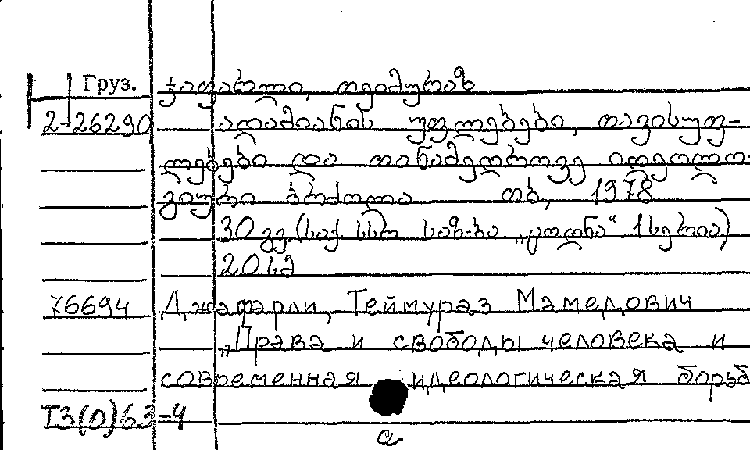 Груз. ჯაფარლი, თეიმურაზ
2-26290 ადამიანის უფლებები, თავისუფ-
ლებები და თანამედროვე იდეოლო-
გიური ბრძოლა თბ, 1978
30 გვ. (საქ. სსრ საზ-ბა „ცოდნა" 1 სერია)
20 კპ
76694 Джафарли, Теймураз Мамедович
„Права и свободы человека и
современная идеологическая борьб
Т3(0)63-4